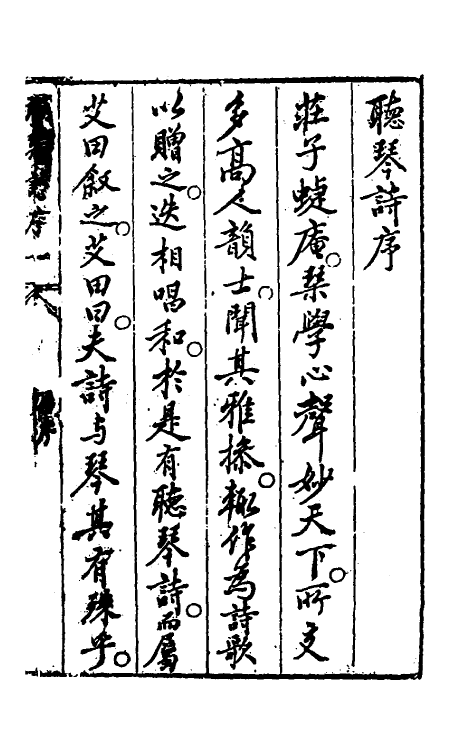 聽琴詩序
莊子蜨庵。琹學心聲妙天下。所交
多高人韻士。聞其雅操。輒作為詩歌
以贈之。迭相唱和。於是有聽琴詩。而屬
艾田敘之。艾田曰。夫詩与琴其有殊乎。
詩序
一